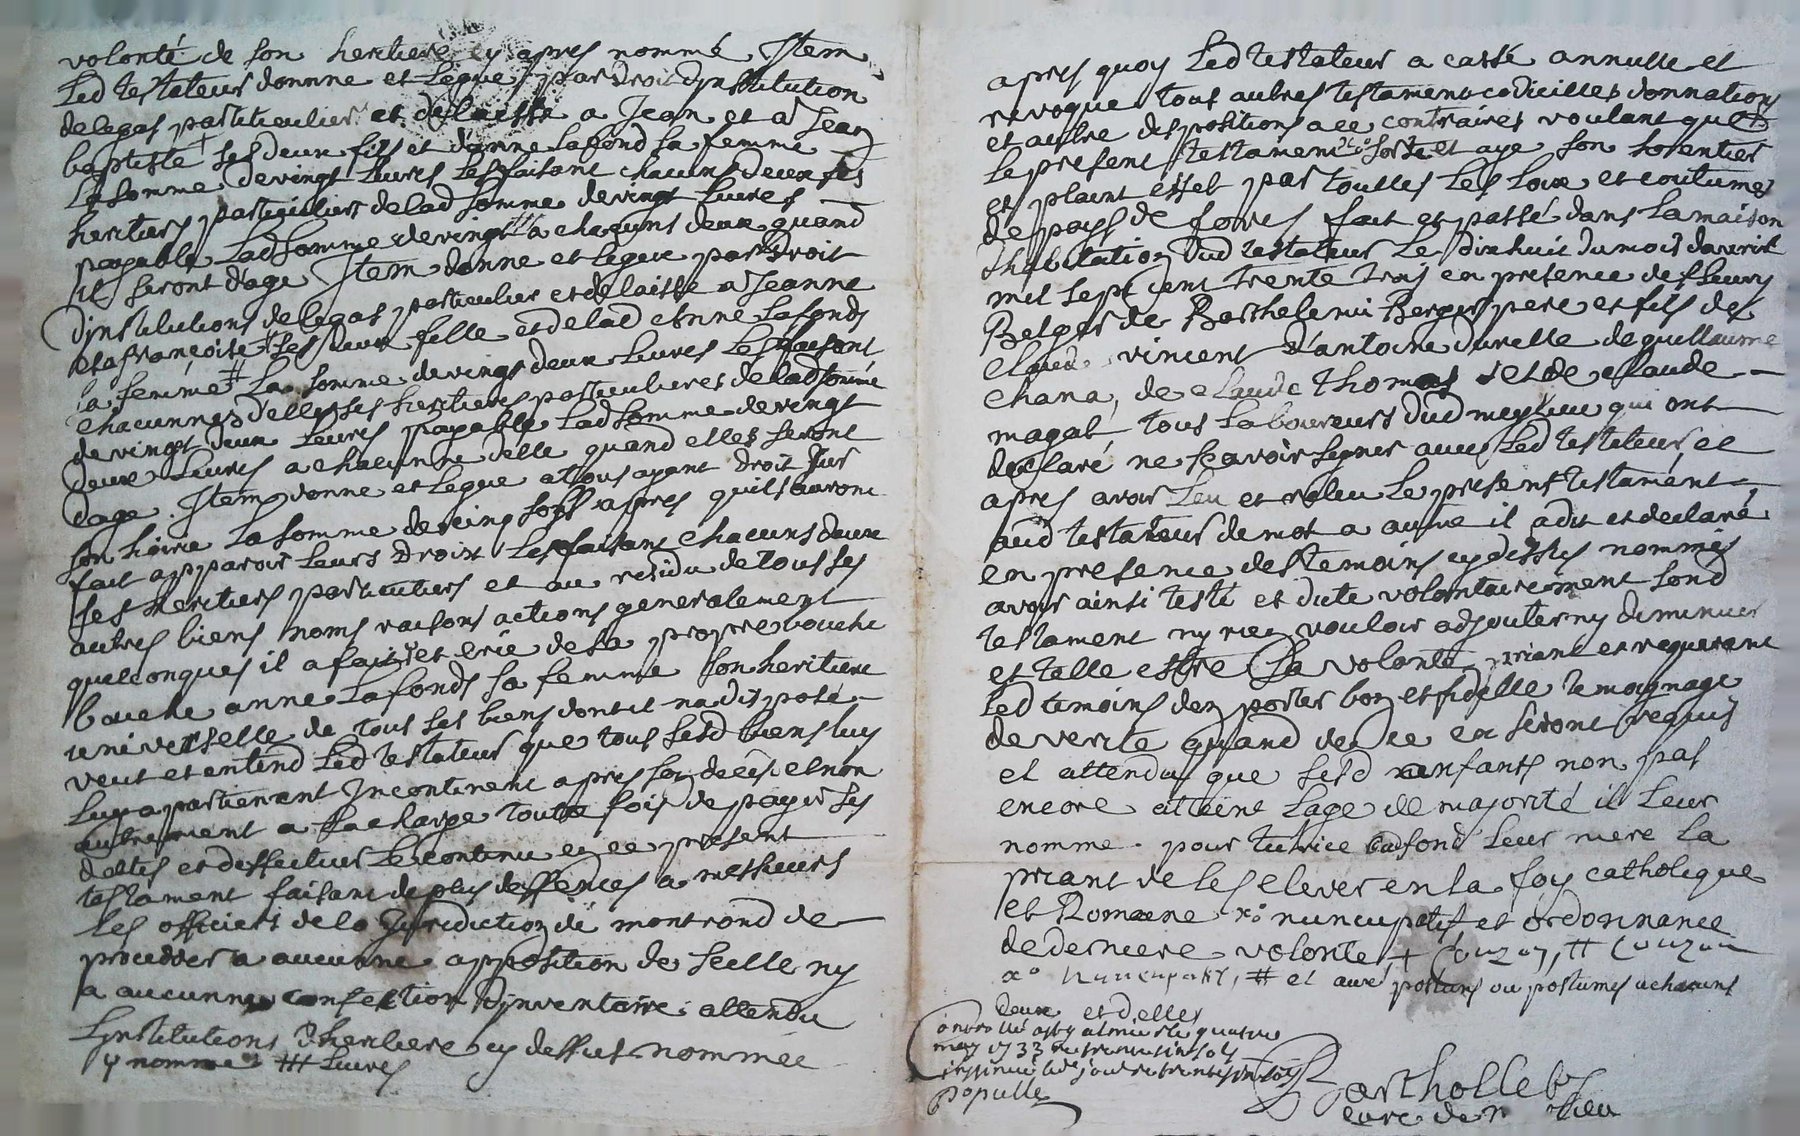 volonté de son heritiere cy apres nommé Item
Led testateur donnne et legue par droit dinstitution
de legas particulier et delaisse a Jean et a Jean
baptiste + ses deux fils et danne lafond sa femme
la somme de vingt livres les faisant chacuns deux ses
heritiers particuliers de lad somme de vingt livres
payable lad somme de vingt # a chacuns deux quand
ils seront dage Item donne et legue par droit
dinstitutions de legat particulier et delaisse a Jeanne
et a françoise # ses deux fille et de lad Anne Lafonds
sa femme # la somme de vingt deux livres les faisant
chacunnes delles ses heritieres particulieres de lad somme
de vingt deux livres payable lad somme de vingt
deux livres a chacunne delle quand elles seront
dage Item donne et legue a tous ayant droit sur
son hoirie la somme de cinq sols apres quils auront
fait apparoir leurs droix les faisans chacuns deux
ses heritiers particuliers et au residu de tous ses
autres biens noms raisons actions generalement
quelconques il a fait et crée de sa propre bouche
bouche anne Lafonds sa femme son heritiere
universelle de tous ses biens dont il na dispose
veut et entend Led testateur que tous sesd biens luy
luy apartienent Incontinent apres son deces et non
autrement a la charge toutte fois de payer ses
debtes et deffectuer le contenu en ce present
testament faisant de plus deffences a messieurs
les officiers de la Jurediction de montrond de
proceder a aucunne apposition de scelle ny
a aucunne confection dinventaire attendu
Linstitutions dheritiere cy dessus nommée
y nommé ## livres
apres quoy led testateur a cassé annullé et
revoque tous autres testament codicilles donnations
et autre dispositions a ce contraires voulant que
le present testament x° sorte et aye son sorentier
et plaint effet par touttes les loix et coutumes
de pays de forest fait et passé dans la maison
dhabitation dud testateur le dixhuit du mois davrit
mil sept cent trente trois en presence de sieurs
Berger de Barthelemi Berger pere et fils de
claude vincent d'antoine durelle de guillaume
chana, de claude thomas et de claude
magat tous laboureurs dud meylieu qui ont
declaré ne scavoir signer avec led testateur, et
apres avoir leu et releu le present testament
aud testateur de mot a autre il a dit et declaré
en presence des temoins cy dessus nommés
avoir ainsi testé et dicte volontairement sond
testament ny rien vouloir adjouter ny diminuer
et telle estre sa volonté priant et requerant
led temoins den porter bon et fidelle temoignage
de verité quand de ce en seront requis
et attendu que sesd enfants non pas
encore atteint lage de majorité il leur
nomme pour tutrice lad fond leur mere la
priant de les elever en la foy catholique
et Romaine x° nuncupatif et ordonnance
de derniere volonté + Couzon, # Couzon
x° nuncupatif, # et aux postums ou postumes a chacuns
deux et delles
may 1733
populle
Barthollet
curé de